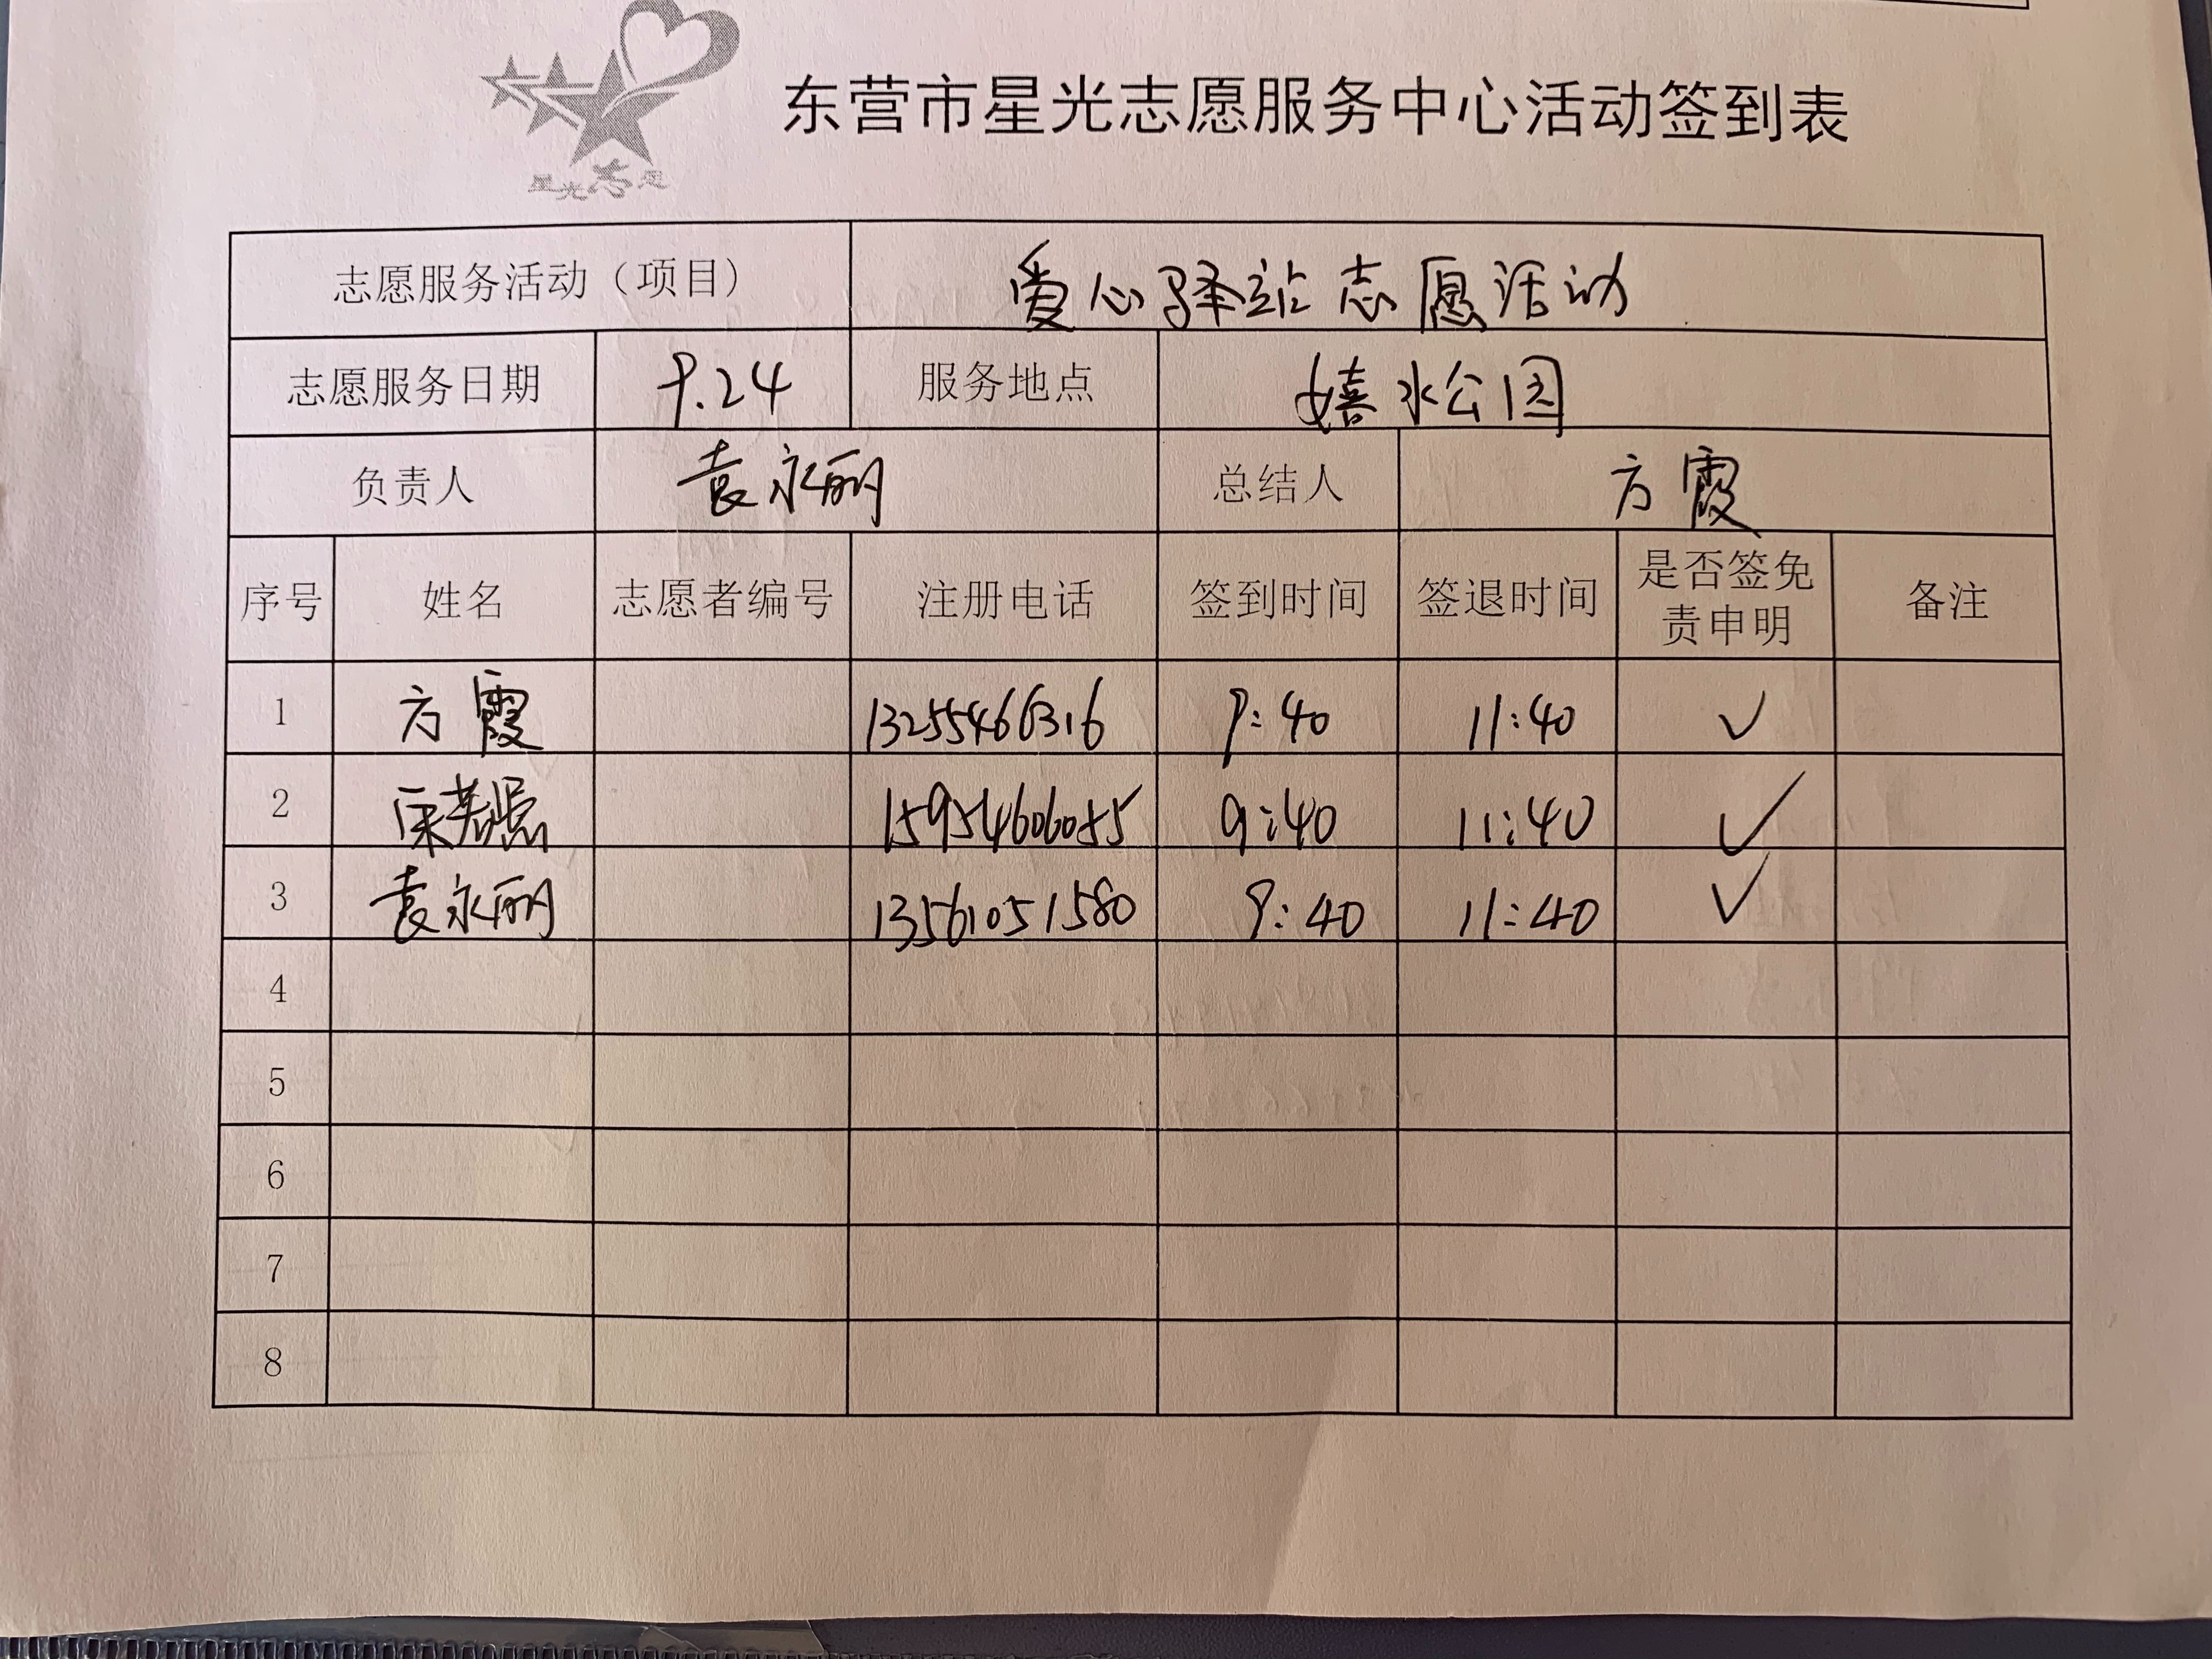 星光志愿
东营市星光志愿服务中心活动签到表
志愿服务活动（项目） 爱心驿站志愿活动
志愿服务日期 9.24 服务地点 嬉水公园
负责人 袁永丽 总结人 方霞
序号 姓名 志愿者编号 注册电话 签到时间 签退时间 是否签免责申明 备注
1 方霞 13255466316 9:40 11:40 ✓
2 15954606055 9:40 11:40 ✓
3 袁永丽 13561051580 9:40 11:40 ✓
4
5
6
7
8